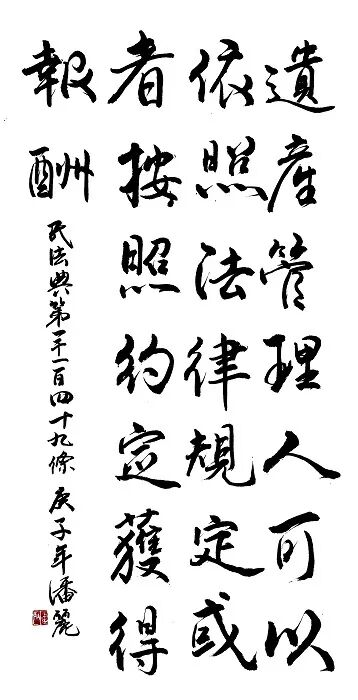 遺産管理人可以
依照法律規定或
者按照約定獲得
報酬
民法典第一千一百四十九條 庚子年潘麗